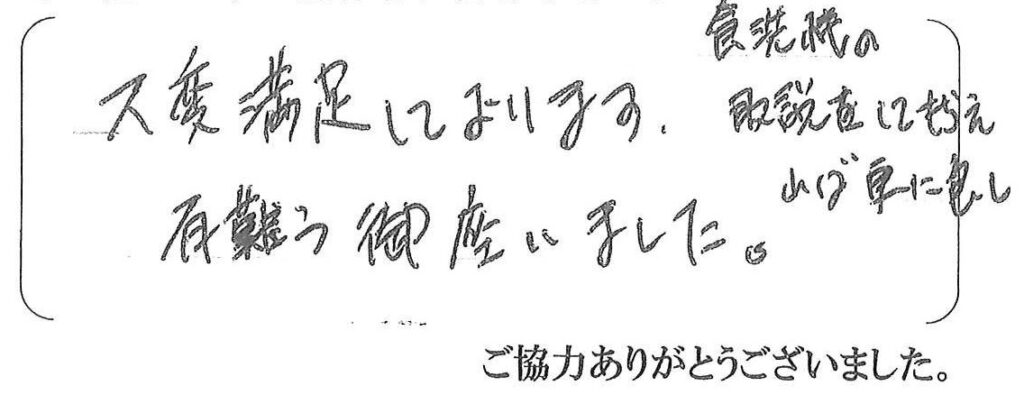 大変満足しております.
有難う御座いました。
食洗機の
取説をして
ば
に
ご協力ありがとうございました。